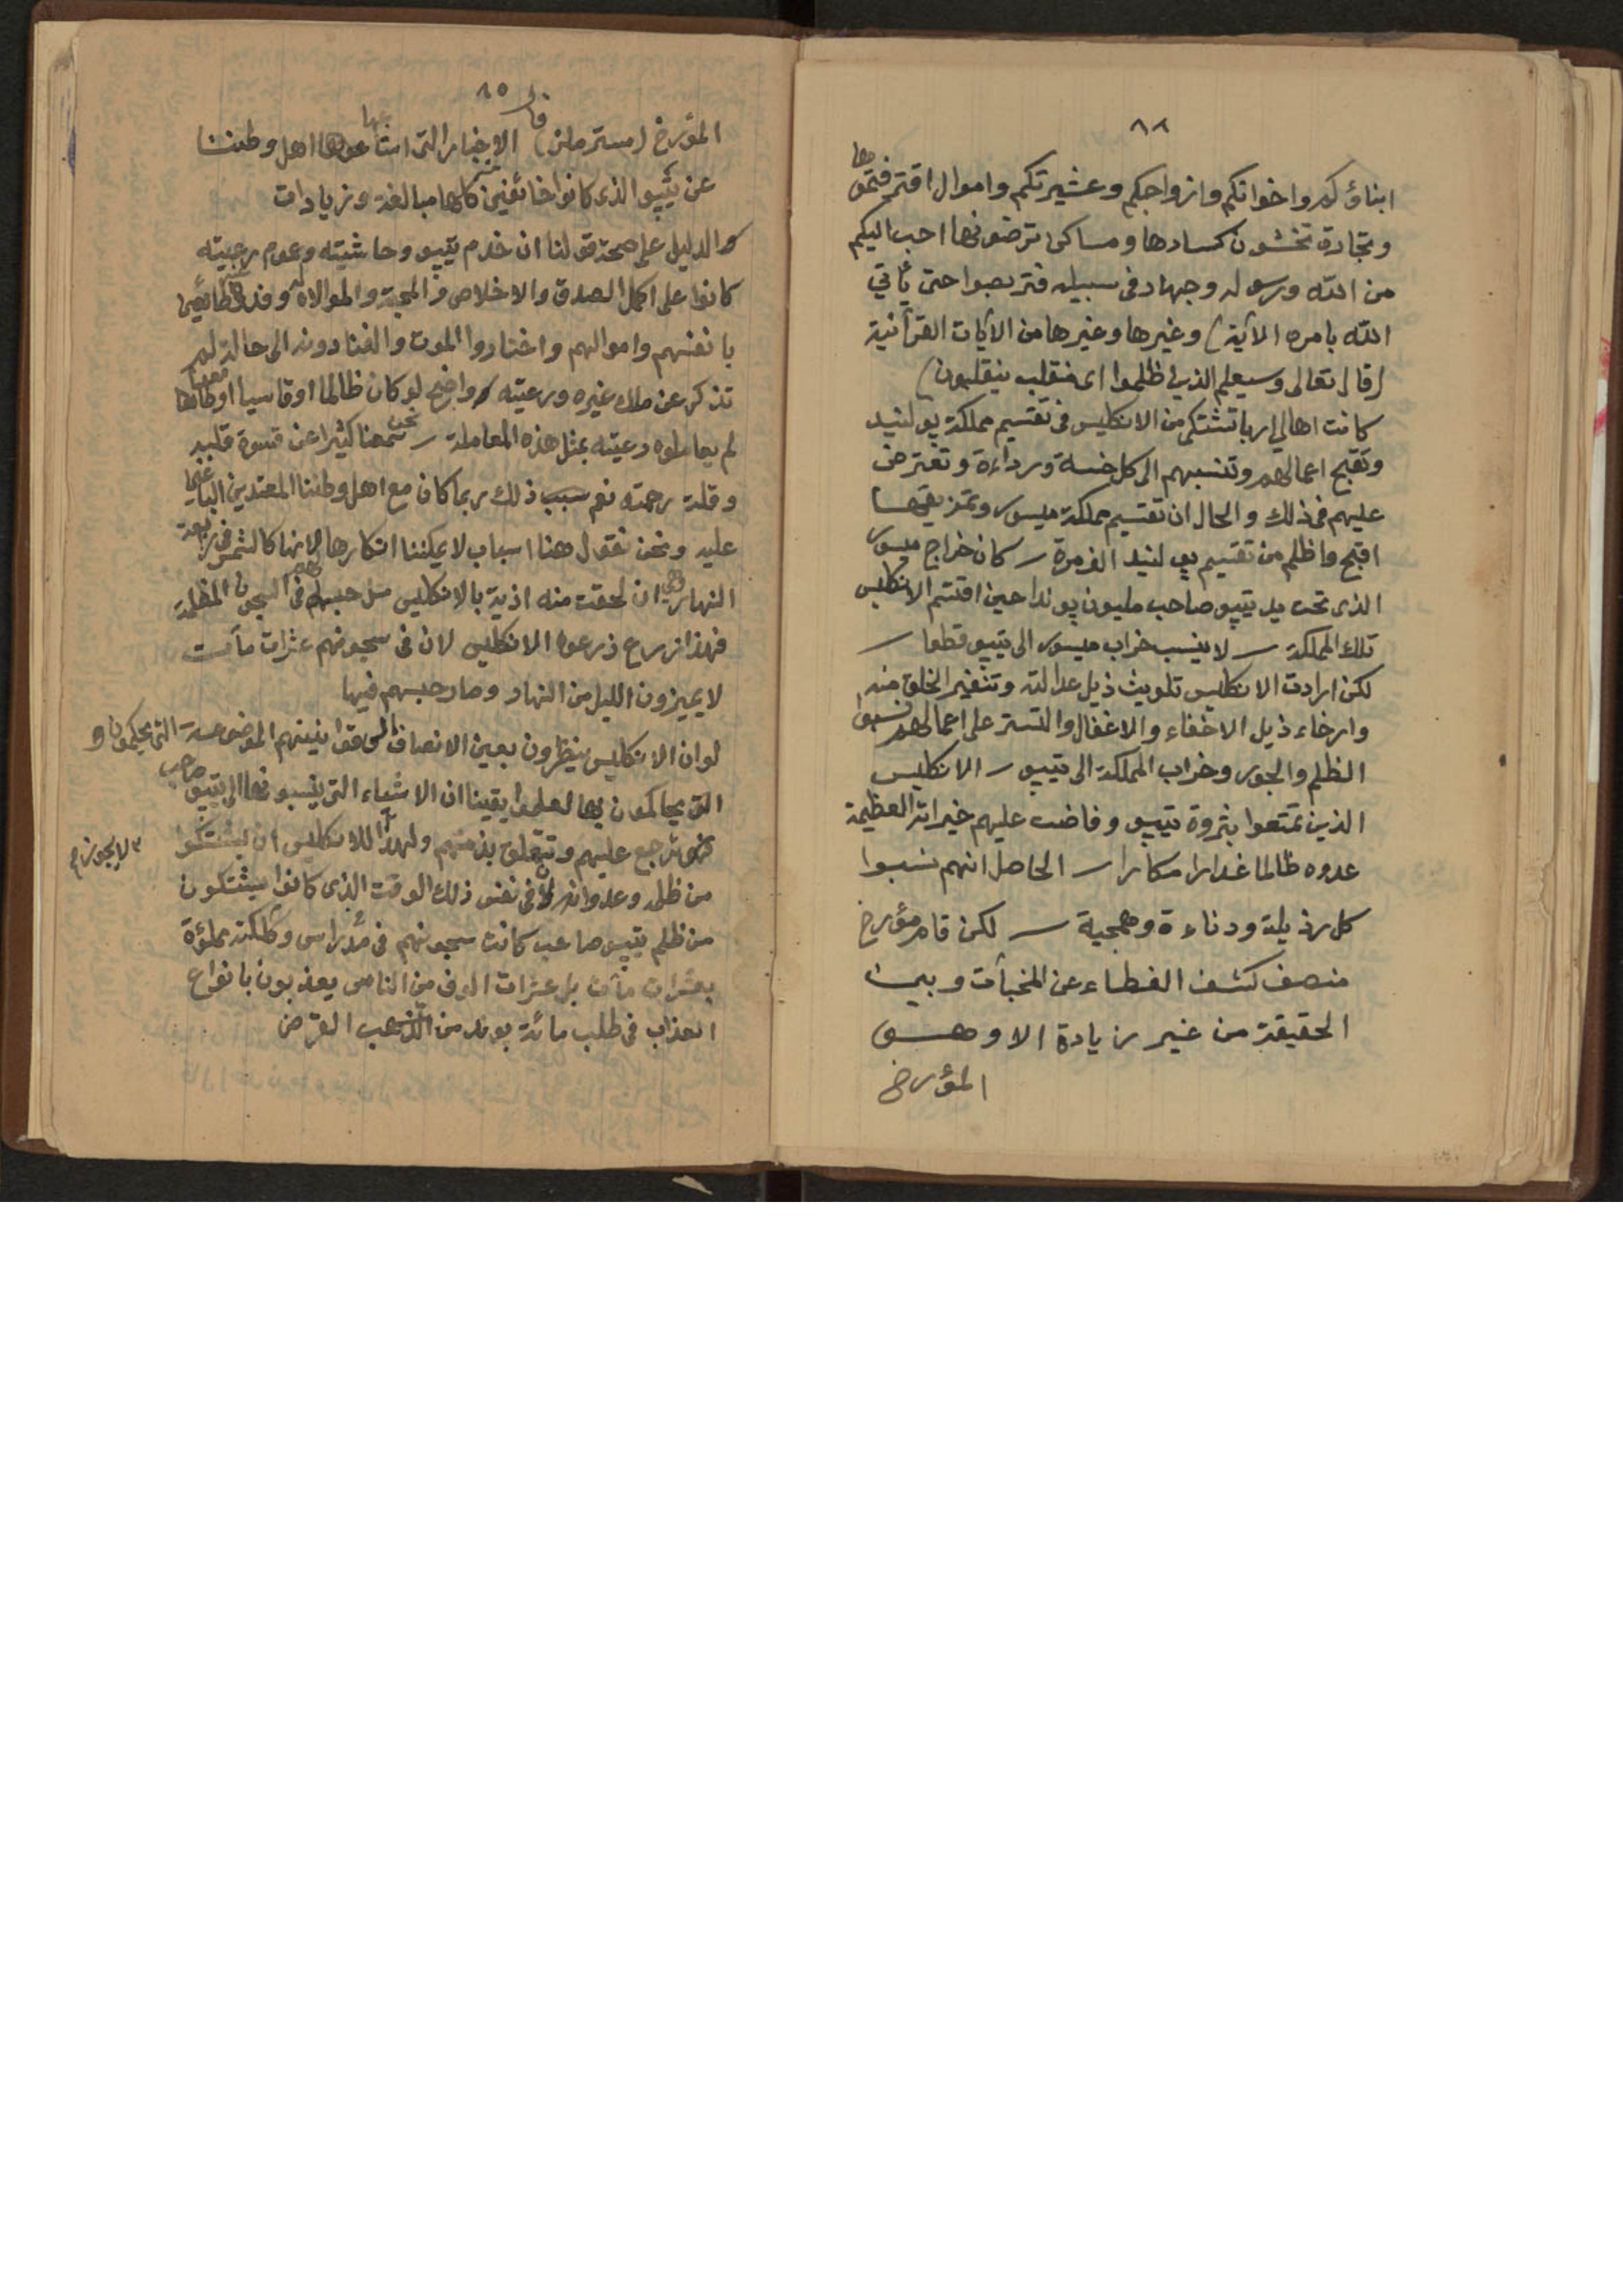 ٨٤
ابناؤكم واخوانكم وازواجكم وعشيرتكم واموال اقترفتموها
وتجارة تخشون كسادها ومساكن ترضونها احب اليكم
من الله ورسوله وجهاد فى سبيله فتربصوا حتى يأتي
الله بامره الآية) وغيرها وغيرها من الآيات القرآنية
(قال تعالى وسيعلم الذين ظلموا اى منقلب ينقلبون)
كانت اهالي اربا تشتكى من الانكليس فى تقسيم مملكة بولنيد
وتقبح اعمالهم وتنسبهم الى كل خسة ورداءة وتعترض
عليهم فى ذلك والحال ان تقسيم مملكة ميسور وتمزيقها
اقبح واظلم من تقسيم بولنيد الف مرة ـ كان خراج ميسور
الذى تحت يد تيپو صاحب مليون پوندا حين اقتسم الانكليس
تلك المملكة ـ لا ينسب خراب ميسور الى تيپو قطعا ـ
لكن ارادت الانكليس تلويث ذيل عدالته وتنفير الخلق منه
وارخاء ذيل الاخفاء والاغفال والتستر على اعمالهم نسبوا
الظلم والجور وخراب المملكة الى تيپو ـ الانكليس
الذين تمتعوا بثروة تيپو وفاضت عليهم خيراته العظيمة
عدوه ظالما غدارا مكارا ـ الحاصل انهم نسبوا
كل رذيلة ودناءة وهمجية ـ لكن قام مؤرخ
منصف كشف الغطاء عن المخبآت وبين
الحقيقة من غير زيادة الا وهو
المؤرخ
٨٥
المؤرخ (مستر ملز) قال الاخبار التى اشاعوها اهل وطننا
عن تيپو الذى كانوا خائفين منه كلها مبالغة وزيادات
والدليل على صحة قولنا ان خدم تيپو وحاشيته وعموم رعيته
كانوا على اكمل الصدق والاخلاص والمحبة والموالاة له وفدوه طائعين
بانفسهم واموالهم واختاروا الموت والفنا دونه الى حالة لم
تذكر عن ملك غيره ورعيته وواضح لو كان ظالما او قاسيا
لم يعاملوه رعيته بمثل هذه المعاملة ـ نحن سمعنا كثيرا عن قسوة قلبه
وقلة رحمته نعم سبب ذلك ربما كان مع اهل وطننا المعتدين الباغين
عليه ونحن نقول هنا اسباب لا يمكننا انكارها لانها كالشمس فى رابعة
النهار وهى ان لحقت منه اذية بالانكليس مثل حبسهم فى السجون المظلمة
فهذا زرع زرعوه الانكليس لان فى سجونهم عشرات مآت
لا يميزون الليل من النهار وصار حبسهم فيها
لو ان الانكليس ينظرون بعين الانصاف الى قوانينهم الموضوعة التى يحكمون او
التى يحاكمون بها لعلموا يقينا ان الاشياء التى ينسبونها الى تيپو صاحب
ترجع عليهم وتتعلق بذمتهم ولهذا لا يجوز للانكليس ان يشتكوا
من ظلمه وعدوانه لان فى نفس ذلك الوقت الذى كانوا يشتكون
من ظلم تيپو صاحب كانت سجونهم فى مدراس وكلكته مملؤة
بعشرات مآت بل عشرات الوف من الناس يعذبون بانواع
العذاب فى طلب مائة پوند من الذهب القرض